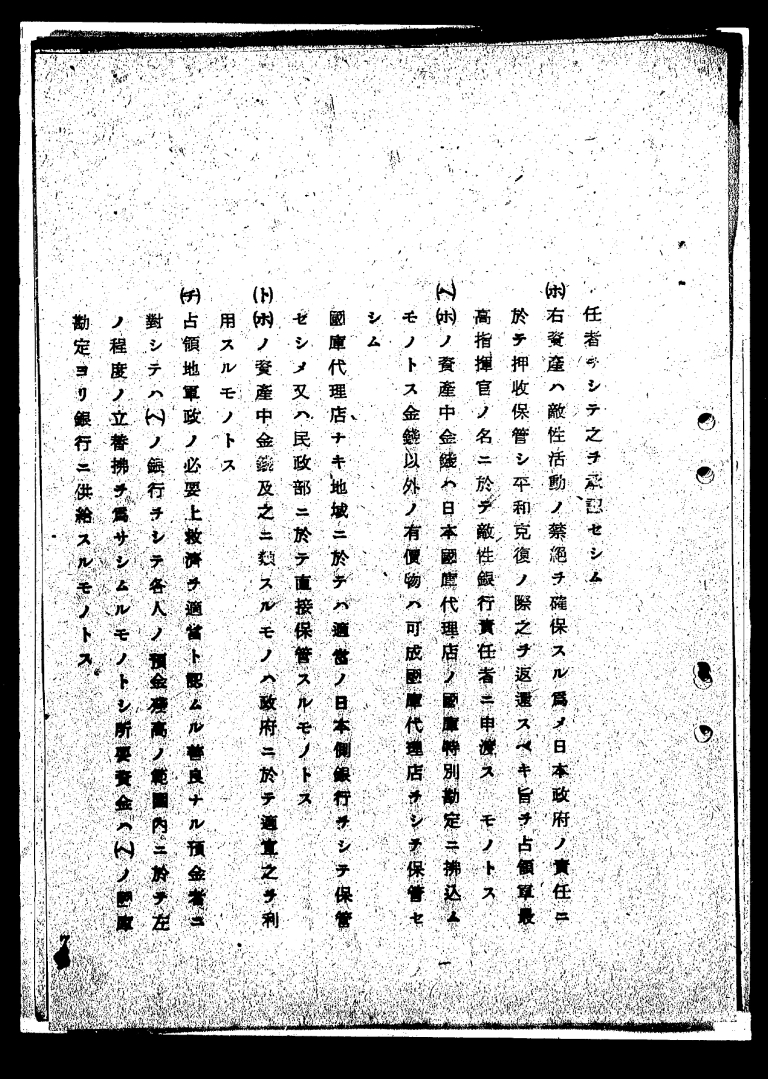 任者ヲシテ之ヲ承認セシム
(ホ)右資產ハ敵性活動ノ禁絕ヲ確保スル爲メ日本政府ノ責任ニ
於テ押收保管シ平和克復ノ際之ヲ返還スベキ旨ヲ占領軍最
高指揮官ノ名ニ於テ敵性銀行責任者ニ申渡ス モノトス
(ヘ)(ホ)ノ資產中金錢ハ日本國庫代理店ノ國庫特別勘定ニ拂込ム
モノトス金錢以外ノ有價物ハ可成國庫代理店ヲシテ保管セ
シム
國庫代理店ナキ地域ニ於テハ適當ノ日本側銀行ヲシテ保管
セシメ又ハ民政部ニ於テ直接保管スルモノトス
(ト)(ホ)ノ資產中金錢及之ニ類スルモノハ政府ニ於テ適宜之ヲ利
用スルモノトス
(チ)占領地軍政ノ必要上救濟ヲ適當ト認ムル善良ナル預金者ニ
對シテハ(ヘ)ノ銀行ヲシテ各人ノ預金殘高ノ範圍內ニ於テ左
ノ程度ノ立替拂ヲ爲サシムルモノトシ所要資金ハ(ヘ)ノ國庫
勘定ヨリ銀行ニ供給スルモノトス
7